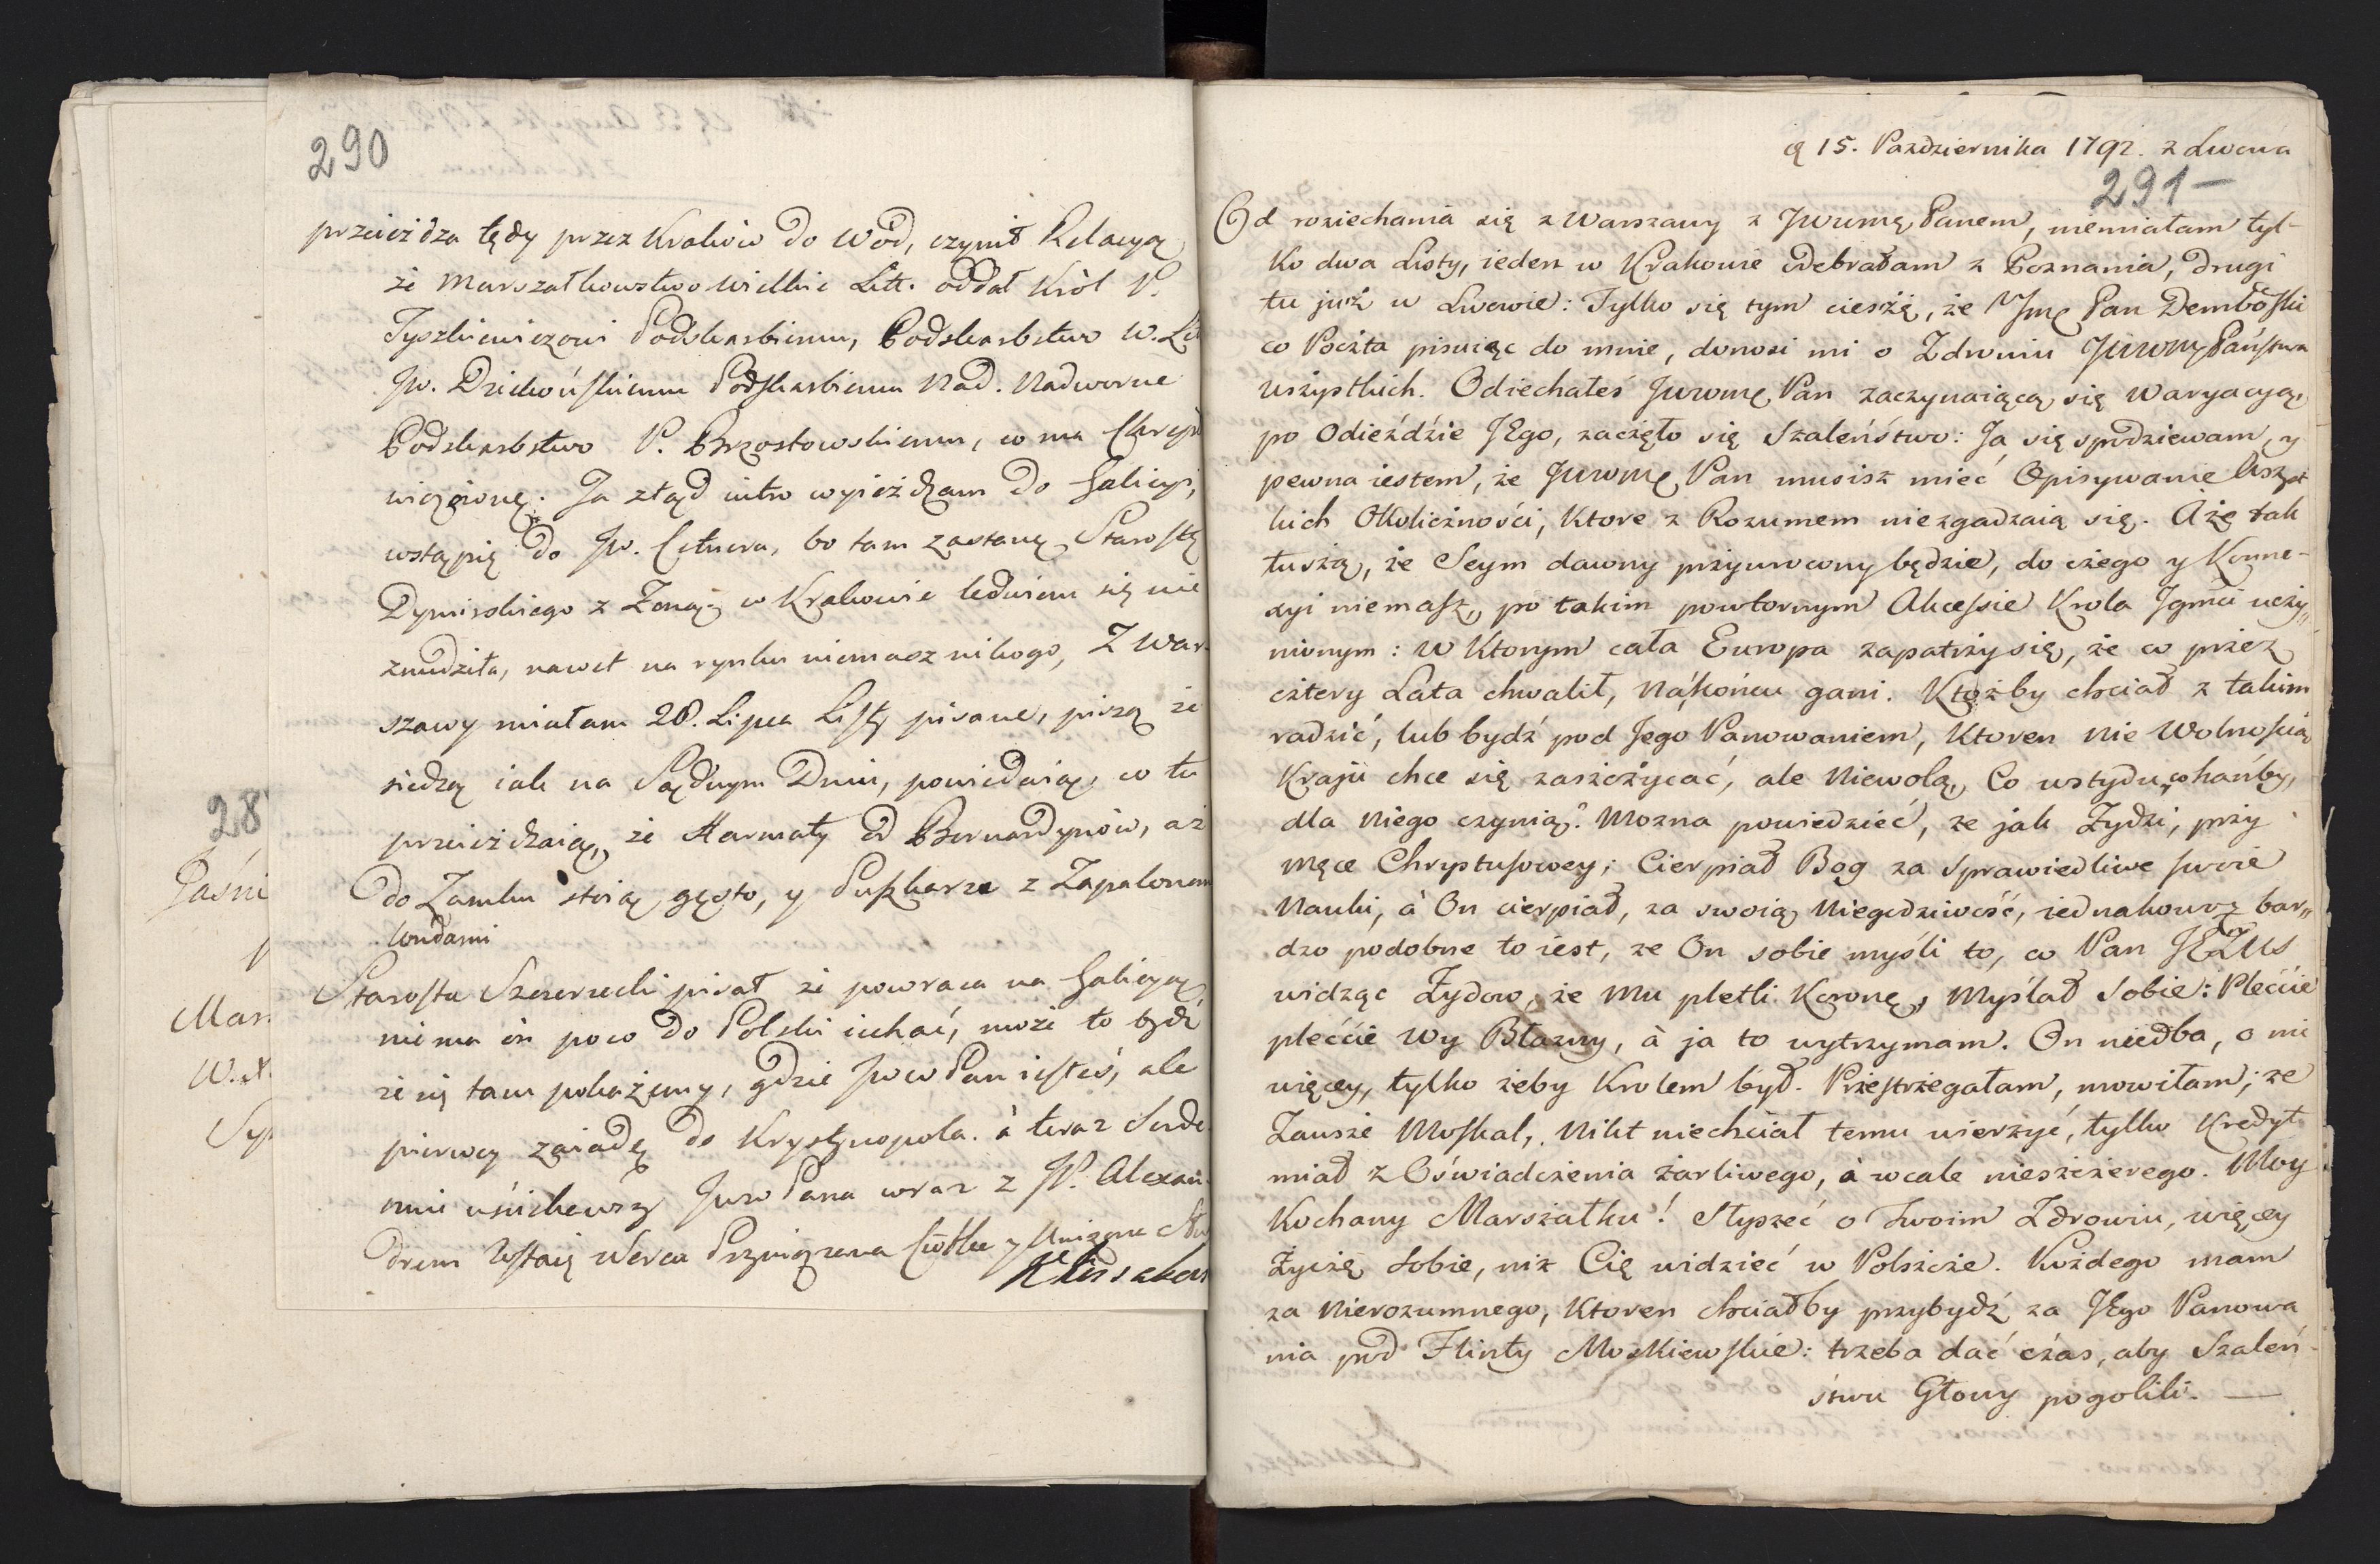 290
przeieżdza tędy przez Kraków do wód, czynił Relacyą
że Marszałkowstwo Wielkie Litt. oddał Król P.
Tyszkiewiczowi Podskarbiemu, Podskarbstwo W. Lit
Jw. Dziekońskiemu Podskarbiemu Nad. Nadworne
Podskarbstwo P. Brzostowskiemu, co ma
Ja ztąd iutro wyieżdżam do Galicyi,
wstąpię do Jw. Cetnera, bo tam zastanę Starostę
Dymirskiego z Żoną, w Krakowie ledwiem się nie
znudziła, nawet na rynku niemasz nikogo, Z War-
szawy miałam 28. Lipca Listy pisane, piszą że
siedzą iak na Sądnym Dniu, powiedaią, co tu
przeieżdzaią, że Harmaty od Bernardynów, aż
do Zamku stoią gęsto, y Puszkarze z Zapalonem
londami
Starosta Szczerzecki pisał że powraca na Galicyą
nie ma on poco do Polski iechać, może to bydź
że się tam pokażemy, gdzie Jww Pan iesteś, ale
pierwey zaiadę do Krystynopola. à teraz Serde
mie uścickawszy Jww Pana wraz z JP. Alexan-
drem Zstaię Werca Przywiązana Ciotka y Uniżona
K
28
Jaśni
Mar.
W.X.
q 15. Pazdziernika 1792. z Lwowa
291-
Od roziechania się z Warszawy z Jwwmę Panem, niemiałam tyl-
ko dwa Listy, ieden w Krakowie odebrałam z Poznania, drugi
tu już w Lwowie: Tylko się tym cieszę, że Jmę Pan Dembosski
co Poczta pisuiąc do mnie, donosi mi o Zdrowiu Jwwmę Państwa
wszystkich. Odiechałeś Jwwmę Pan zaczynaiącą się Waryacyą,
po Odieździe JEgo, zaczęło się Szaleństwo: Ja się spodziewam, y
pewna iestem, że Jwwmę Pan musisz mieć Opisywanie Wszyst
kich Okoliczności, Ktore z Rozumem niezgadzaią się. A że tak
tuszą, że Seym dawny przywrocony będzie, do czego y Konne-
xyi niemasz, po takim powtornym Akcessie Krola Jgmći uczy„
nionym: w Ktorym cała Europa zapatrzy się, że co przez
cztery Lata chwalił, nakońcu gani. Ktożby chciał z takim
radzić, lub bydź pod Jego Panowaniem, Ktoren nie Wolnością
Kraju chce się zaszczycać, ale Niewolą, Co wstydu, co hańby,
dla Niego czynią? Mozna powiedzieć, ze jak Żydzi, przy
męce Chrystusowey; Cierpiał Bog za Sprawiedliwe swoie
Nauki, à On cierpiał, za swoią Niegodziwość, iednakowoż bar„
dzo podobne to iest, ze On sobie myśli to, co Pan JEZUS
widząc Żydow, że Mu pletli Koronę, Myślał Sobie: Plećcie
plećcie Wy Błazny, à ja to wytrzymam. On niedba, o nic
więcey, tylko żeby Krolem był. Przestrzegałam, mowiłam; ze
Zawsze Moskal, Nikt niechciał temu wierzyć, tylko Kredyt
miał z Oświadczenia żarliwego, à wcale nieszczerego. Moy
Kochany Marszałku! Słyszeć o Twoim Zdrowiu, więcey
Życzę sobie, niz Cię widzieć w Polszcze. Kożdego mam
za Nierozumnego, Ktoren chciałby przybydź za JEgo Panowa
nia pod Flinty Moskiewskie: trzeba dać czas, aby Szaleń-
stwu Głowy pogolili. —